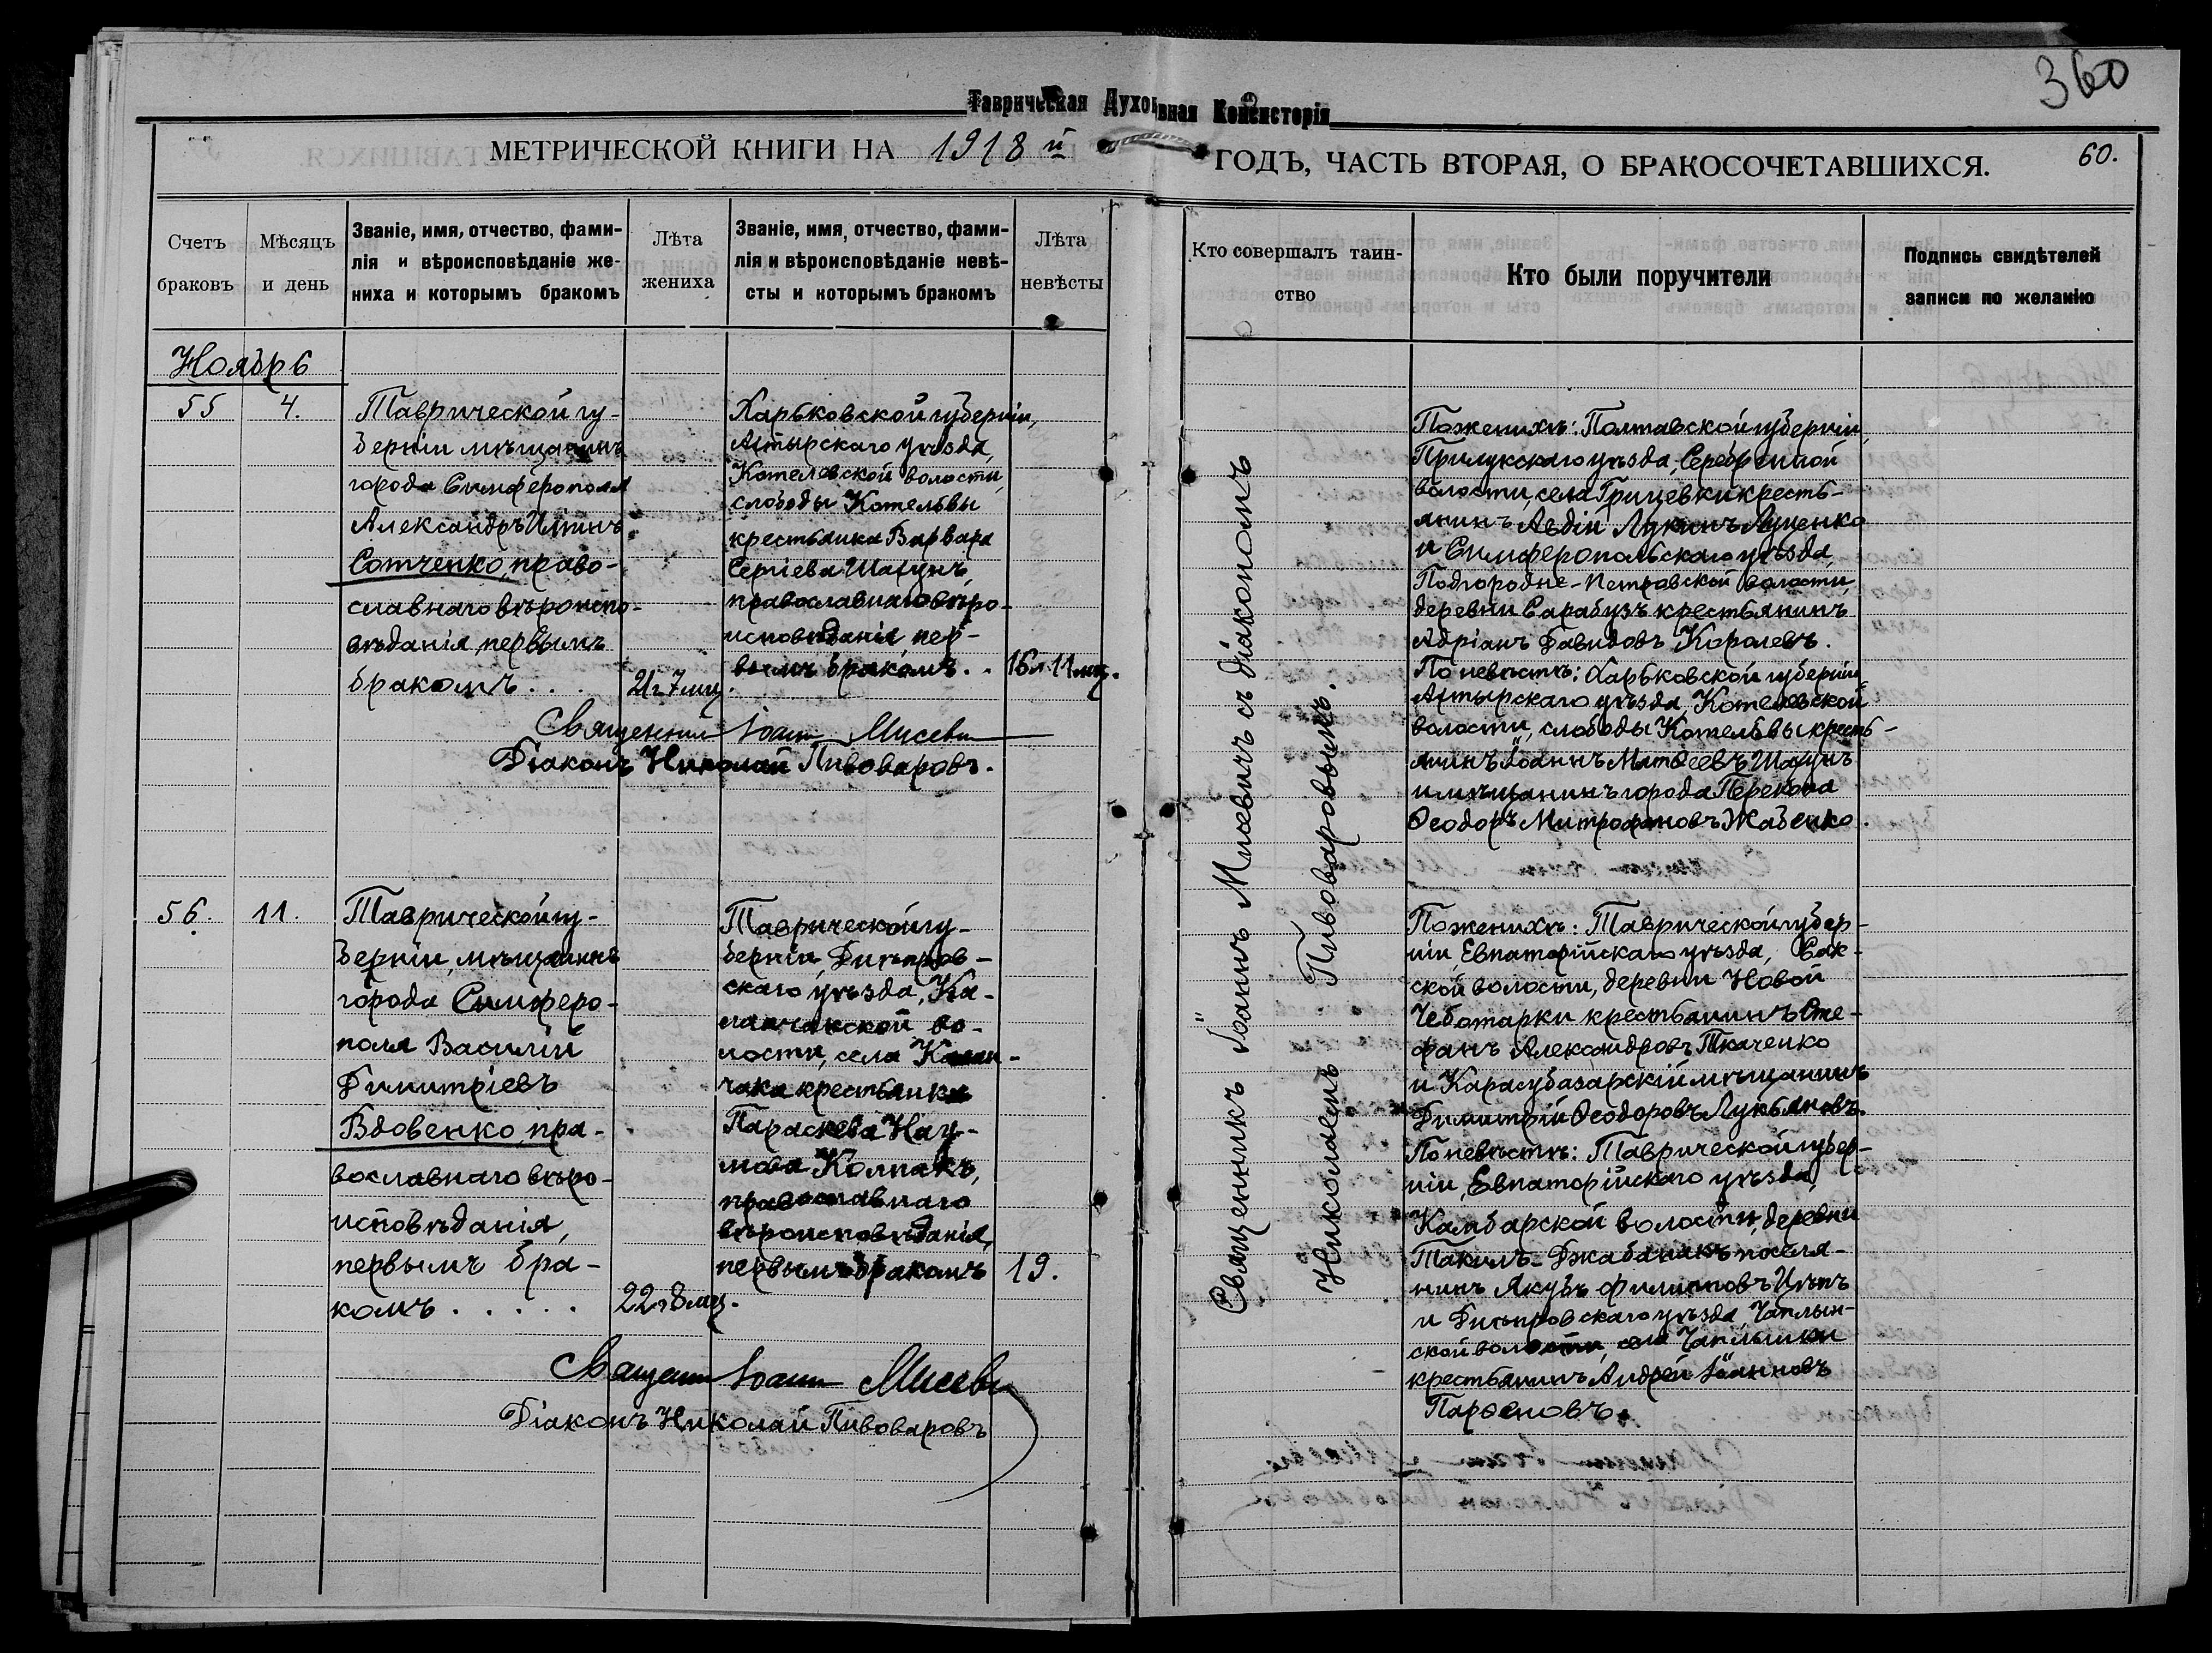 360
Таврическая Духовная Консисторія
МЕТРИЧЕСКОЙ КНИГИ НА 1918 й ГОДЪ, ЧАСТЬ ВТОРАЯ, О БРАКОСОЧЕТАВШИХСЯ.
60.
Счетъ
браковъ
Мѣсяцъ
и день
Званіе, имя, отчество, фами-
лія и вѣроисповѣданіе же-
ниха и которымъ бракомъ
Лѣта
жениха
Званіе, имя, отчество, фами-
лія и вѣроисповѣданіе невѣ-
сты и которымъ бракомъ
Лѣта
невѣсты
Кто совершалъ таин-
ство
Кто были поручители
Подпись свидѣтелей
записи по желанію
Ноябрь
55
4.
Таврической гу-
берніи мѣщанинъ
города Симферополя
Александръ
Сотченко, право-
славнаго вѣроиспо-
вѣданія, первымъ
бракомъ . . .
21 г 7 мц.
Харьковской губерніи,
Ахтырскаго уѣзда,
Котелевской волости,
слободы Котельвы
крестьянка Варвара
Сергіева Шагунъ,
православнаго вѣро-
исповѣданія, пер-
вымъ бракомъ. .
16 л 11 мц.
Священник Іоанн Мисевич
Діаконъ Николай Пивоваровъ.
Священникъ Іоаннъ Мисевичъ съ діакономъ
Николаемъ Пивоваровымъ.
По женихѣ: Полтавской губерніи,
Прилукскаго уѣзда, Серебрянной
волости, села Грицевки кресть-
янинъ Авдій Лукинъ Луценко
и Симферопольскаго уѣзда,
Подгородне-Петровской волости,
деревни Сарабузъ крестьянинъ
Адріанъ Давидовъ Королевъ.
По невѣстѣ: Харьковской губерніи,
Ахтырскаго уѣзда, Котелевской
волости, слободы Котельвы кресть-
янинъ Іоаннъ Матѳеевъ Шагунъ
и мѣщанинъ города Перекопа
Ѳеодоръ Митрофановъ Жабенко.
56.
11.
Таврической гу-
берніи, мѣщанинъ
города Симферо-
поля Василій
Димитріевъ
Вдовенко, пра-
вославнаго вѣро-
исповѣданія,
первымъ бра-
комъ . . . . .
22 г 8 мц.
Таврической гу-
берніи, Днѣпров-
скаго уѣзда, Ка-
ланчакской во-
лости, села Калан-
чака крестьянка
Параскева Нау-
мова Колпакъ,
православнаго
вѣроисповѣданія,
первымъ бракомъ
19.
Священник Іоанн Мисевич
Діаконъ Николай Пивоваровъ
По женихѣ: Таврической губер-
ніи, Евпаторійскаго уѣзда, Сак-
ской волости, деревни Новой
Чеботарки крестьянинъ Сте-
фанъ Александровъ Ткаченко
и Карасубазарскій мѣщанинъ
Димитрій Ѳеодоровъ Лукьяновъ.
По невѣстѣ: Таврической губер-
ніи, Евпаторійскаго уѣзда,
Камбарской волости, деревни
Такилъ-Джабанакъ поселя-
нинъ Якубъ Филипповъ
и Днѣпровскаго уѣзда, Чаплын-
ской волости, села Чаплынки
крестьянинъ Андрей Іоанновъ
Парѳеновъ.